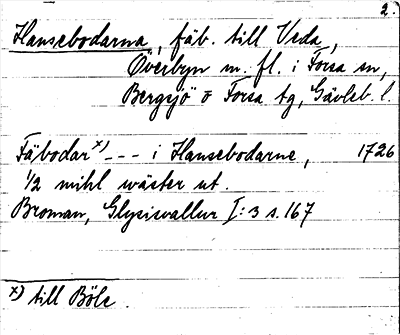 2.
Hansebodarna, fäb. till Veda,
Överbyn m. fl. i Forsa sn,
Bergsjö o Forsa tg, Gävleb. l.
Fäbodar x) - - - i Hansebodarne, 1726
1/2 mihl wäster ut.
Broman, Glysisvallur I:3 s. 167
x) till Böle.